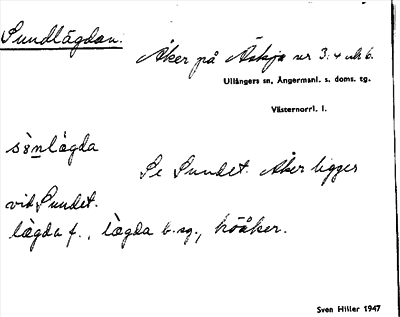 Sundlägdan.
Åker på Äskja nr 3:4 och 6.
Ullångers sn, Ångermanl. s. doms. tg.
Västernorrl. l.
sɜ̀nlǻgda
Se Sundet. Åker ligger
vid Sundet.
lägda f., lägda b. sg., höåker.
Sven Hiller 1947